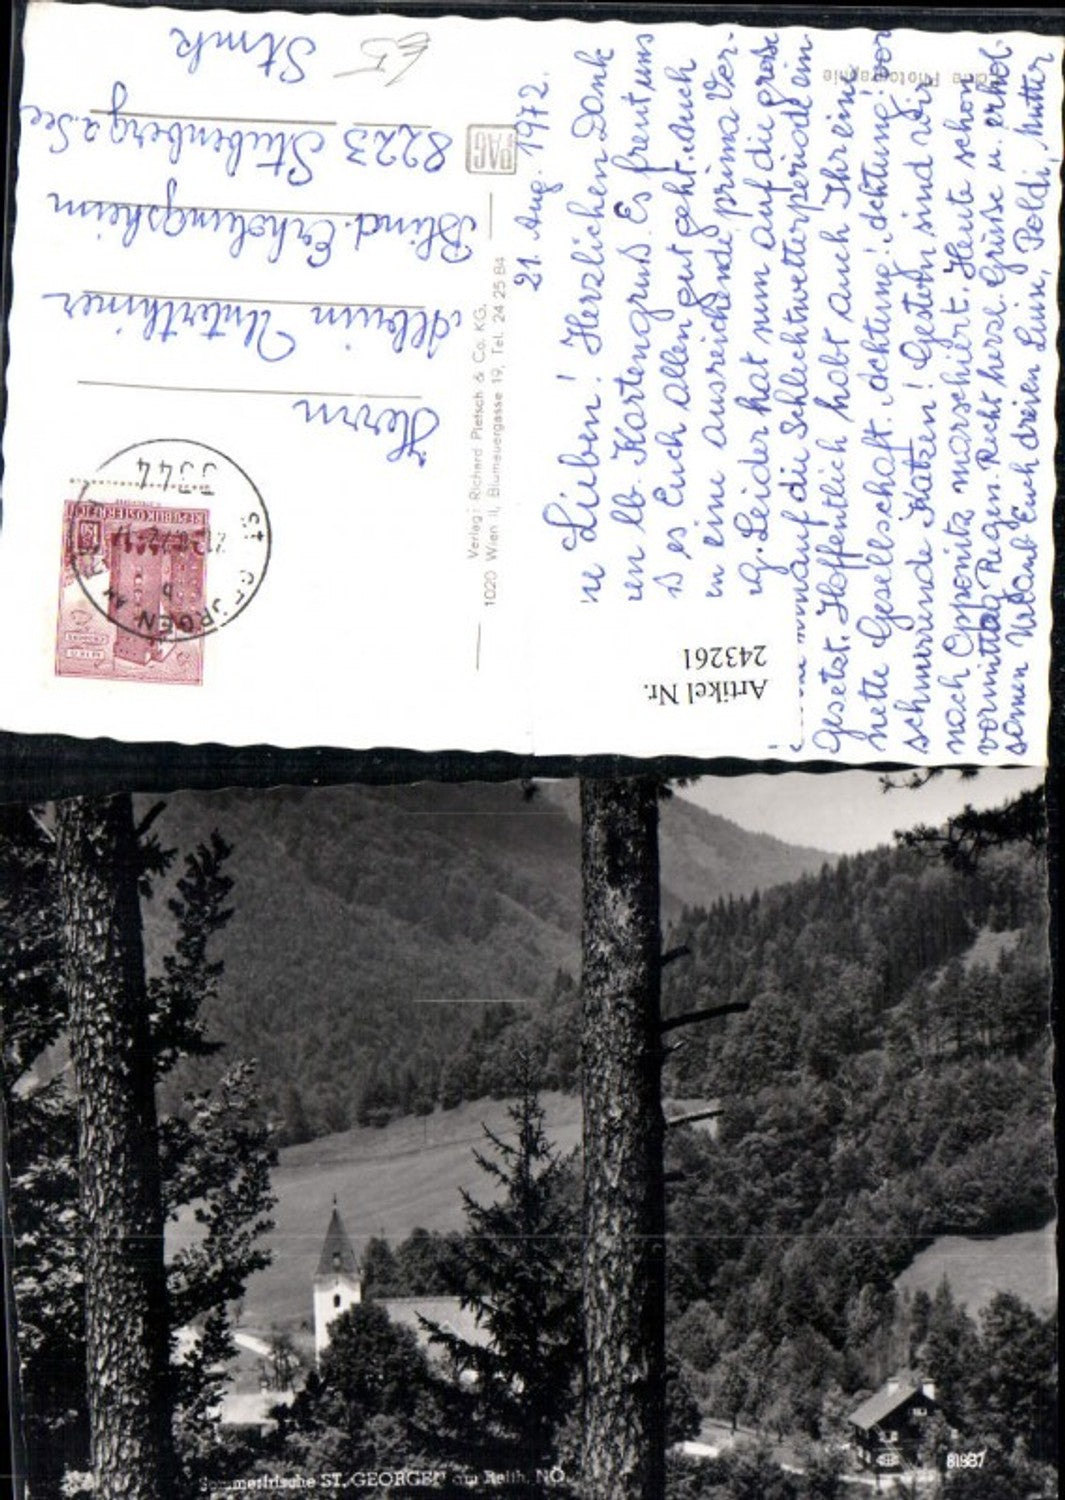 21. Aug. 1972.
Lieben! Herzlichen Dank
lb. Kartengruß. Es freut uns
es Euch allen gut geht. Auch
eine ausreichende prima Ver-
Leider hat nun auf die große
auf die Schlechtwetterperiode ein
gesetzt. Hoffentlich habt auch Ihr eine
nette Gesellschaft. Achtung! Achtung vor
schnurrende Katzen! Gestern sind wir
nach Opponitz marschiert. Heute schon
vormittag Regen. Recht herzl. Grüsse u. erhol-
samen Urlaub Euch dreien Luin, Poldi, Mutter
Artikel Nr.
243261
Herrn
Albuin Unterthiner
Blind. Erholungsheim
8223 Stubenberg a. See
Stmk
€5
PAG
Verlag: Richard Pietsch & Co. KG.
1020 Wien II, Blumauergasse 19, Tel. 24 25 84
Photographie
3344
ST. GEORGEN AM
REPUBLIK ÖSTERREICH
Sommerfrische ST. GEORGEN am Reith, NÖ.
81987